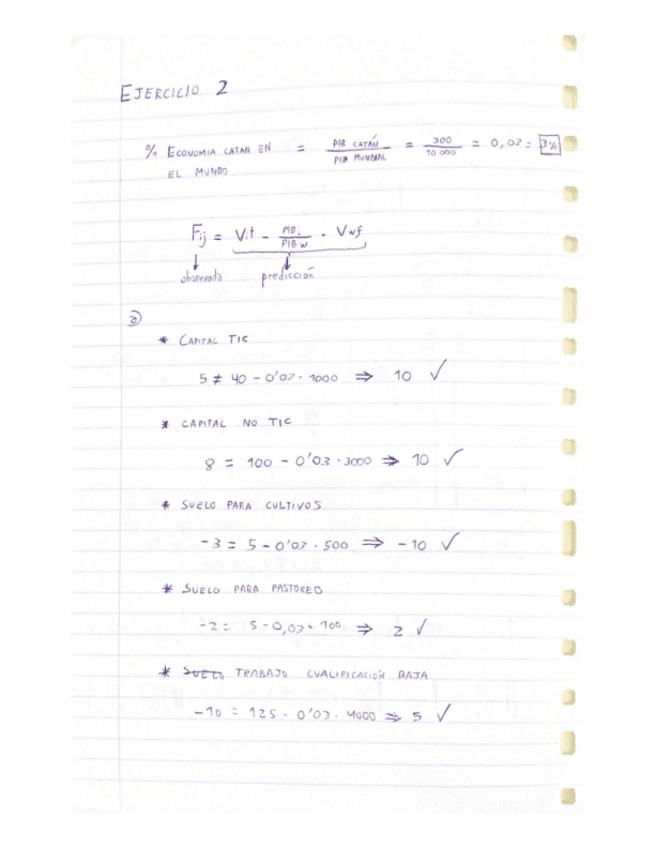 EJERCICIO 2
% ECONOMIA CATAN EN EL MUNDO = PIB CATÁN / PIB MUNDIAL = 300 / 10 000 = 0,03 = 3%
Fij = Vit - PIBi / PIBw · Vwf
observada predicción
a)
* CAPITAL TIC
5 ≠ 40 - 0'03 · 1000 ⇒ 10 ✓
* CAPITAL NO TIC
8 = 100 - 0'03 · 3000 ⇒ 10 ✓
* SUELO PARA CULTIVOS
-3 = 5 - 0'03 · 500 ⇒ -10 ✓
* SUELO PARA PASTOREO
-2 = 5 - 0,03 · 100 ⇒ 2 ✓
* SUELO TRABAJO CUALIFICACIÓN BAJA
-10 = 125 - 0'03 · 4000 ⇒ 5 ✓